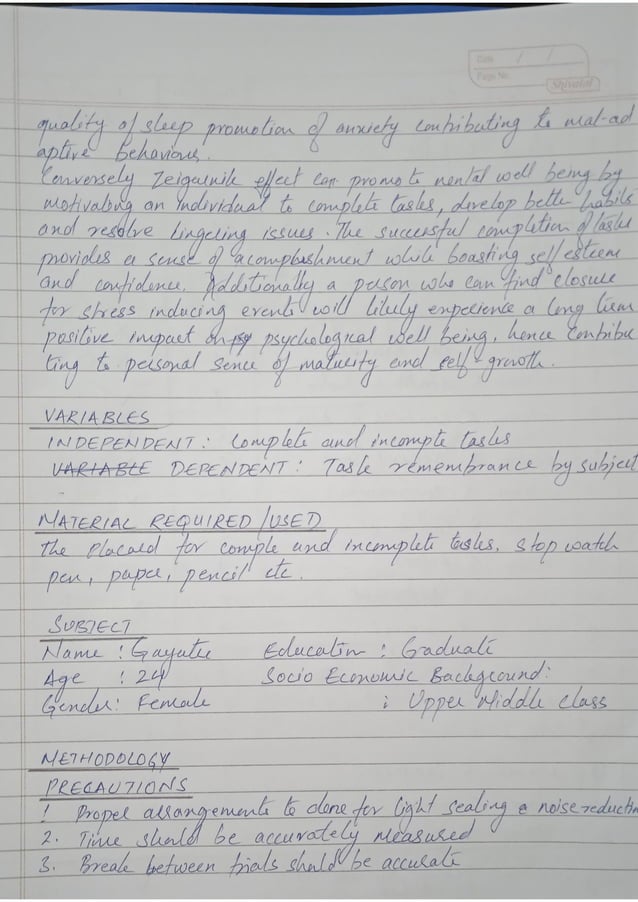 Date / /
Page No.
Shivalal
quality of sleep promotion of anxiety contributing to mal-ad
aptive behaviour.
Conversely Zeigalnik effect can promote mental well being by
motivating an individual to complete tasks, develop better habits
and resolve lingering issues. The successful completion of tasks
provides a sense of acomplushment while boasting self esteem
and confidence. Additionally a person who can find closure
for stress inducing events will likely experience a long term
positive impact on psychological well being, hence contribu
ting to personal sence of maturity and self growth.
VARIABLES
INDEPENDENT : Complete and incompte tasks
VARIABLE DEPENDENT : Task remembrance by subject
MATERIAL REQUIRED/USED
The Placard for comple and incomplete tasks, stop watch
pen, paper, pencil etc.
SUBJECT
Name : Gayatre Education : Graduate
Age : 24 Socio Economic Background:
Gender: Female : Upper Middle Class
METHODOLOGY
PRECAUTIONS
1 Proper arrangements to done for light sealing & noise reductn
2. Time should be accurately measured
3. Break between trials should be accurate